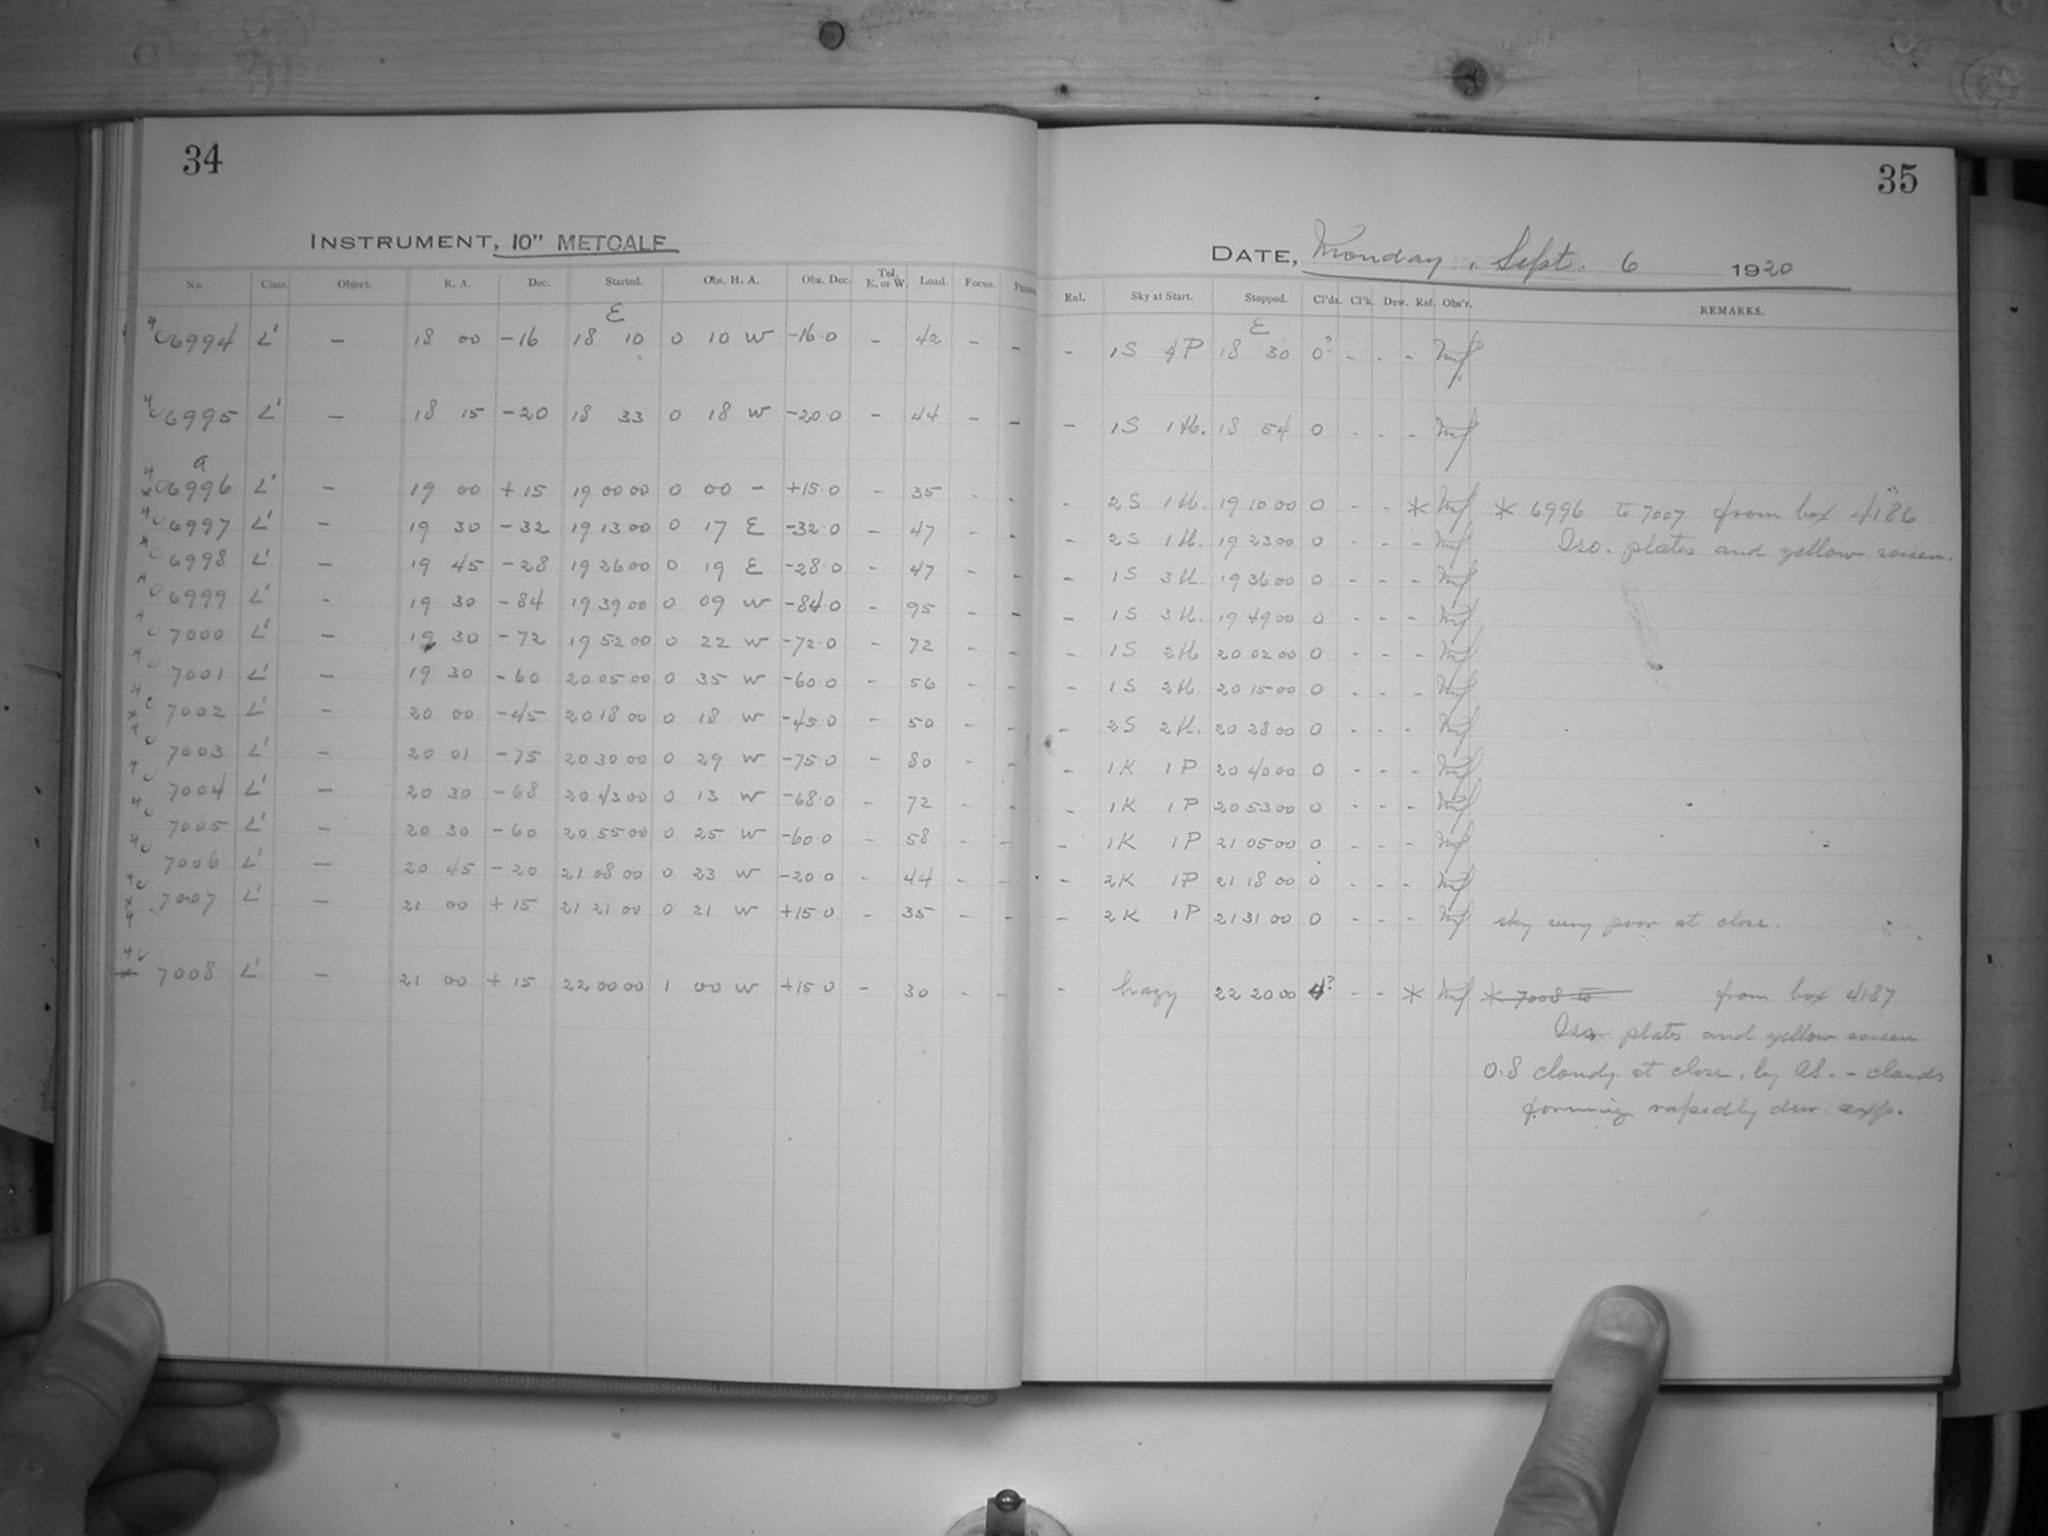 34
INSTRUMENT, 10" METCALF
No. Class. Object. R. A. Dec. Started. Obs. H. A. Obs. Dec. Tel. E. or W. Load. Focus.
E
6994 L' - 18 00 -16 18 10 0 10 W -16.0 - 42 - -
6995 L' - 18 15 -20 18 33 0 18 W -20.0 - 44 - -
a
6996 L' - 19 00 +15 19 00 00 0 00 - +15.0 - 35 - -
6997 L' - 19 30 -32 19 13 00 0 17 E -32.0 - 47 - -
6998 L' - 19 45 -28 19 26 00 0 19 E -28.0 - 47 - -
6999 L' - 19 30 -84 19 39 00 0 09 W -84.0 - 95 - -
7000 L' - 19 30 -72 19 52 00 0 22 W -72.0 - 72 - -
7001 L' - 19 30 -60 20 05 00 0 35 W -60.0 - 56 - -
7002 L' - 20 00 -45 20 18 00 0 18 W -45.0 - 50 - -
7003 L' - 20 01 -75 20 30 00 0 29 W -75.0 - 80 - -
7004 L' - 20 30 -68 20 43 00 0 13 W -68.0 - 72 - -
7005 L' - 20 30 -60 20 55 00 0 25 W -60.0 - 58 - -
7006 L' - 20 45 -20 21 08 00 0 23 W -20.0 - 44 - -
7007 L' - 21 00 +15 21 21 00 0 21 W +15.0 - 35 - -
7008 L' - 21 00 +15 22 00 00 1 00 W +15.0 - 30 - -
35
DATE, Monday, Sept. 6 1920
Eal. Sky at Start. Stopped. Cl'ds. Cl'k. Dew. Ref. Obs'r. REMARKS.
E
- 1S 4P 18 30 0? - - -
- 1S 1H. 18 54 0 - - -
- 2S 1H. 19 10 00 0 - - * * 6996 to 7007 from box 4186
- 2S 1H. 19 23 00 0 - - - Iso. plates and yellow screen.
- 1S 3H. 19 36 00 0 - - -
- 1S 3H. 19 49 00 0 - - -
- 1S 2H 20 02 00 0 - - -
- 1S 2H. 20 15 00 0 - - -
- 2S 2H. 20 28 00 0 - - -
- 1K 1P 20 40 00 0 - - -
- 1K 1P 20 53 00 0 - - -
- 1K 1P 21 05 00 0 - - -
- 2K 1P 21 18 00 0 - - -
- 2K 1P 21 31 00 0 - - - sky very poor at close.
- hazy 22 20 00 4? - - * * 7008 to from box 4187
Iso. plates and yellow screen
0.8 cloudy at close, by AS. - clouds
forming rapidly dur. exp.